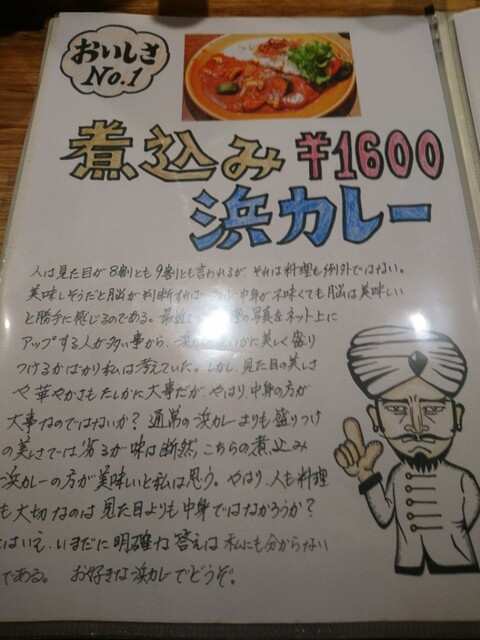 おいしさ
No.1
煮込み ¥1600
浜カレー
人は見た目が8割とも9割とも言われるが、それは料理も例外ではない。
美味しそうだと脳が判断すれば 中身が不味くても脳は美味しい
と勝手に感じるのである。最近 の写真をネット上に
アップする人が多い事から、浜 いかに美しく盛り
つけるかばかり私は考えていた。しかし、見た目の美しさ
や華やかさもたしかに大事だが、やはり、中身の方が
大事なのではないか？ 通常の浜カレーよりも盛りつけ
の美しさでは劣るが味は断然、こちらの煮込み
浜カレーの方が美味いと私は思う。やはり、人も料理
も大切なのは見た目よりも中身ではなかろうか？
とはいえ、いまだに明確な答えは私にも分からない
である。 お好きな浜カレーでどうぞ。